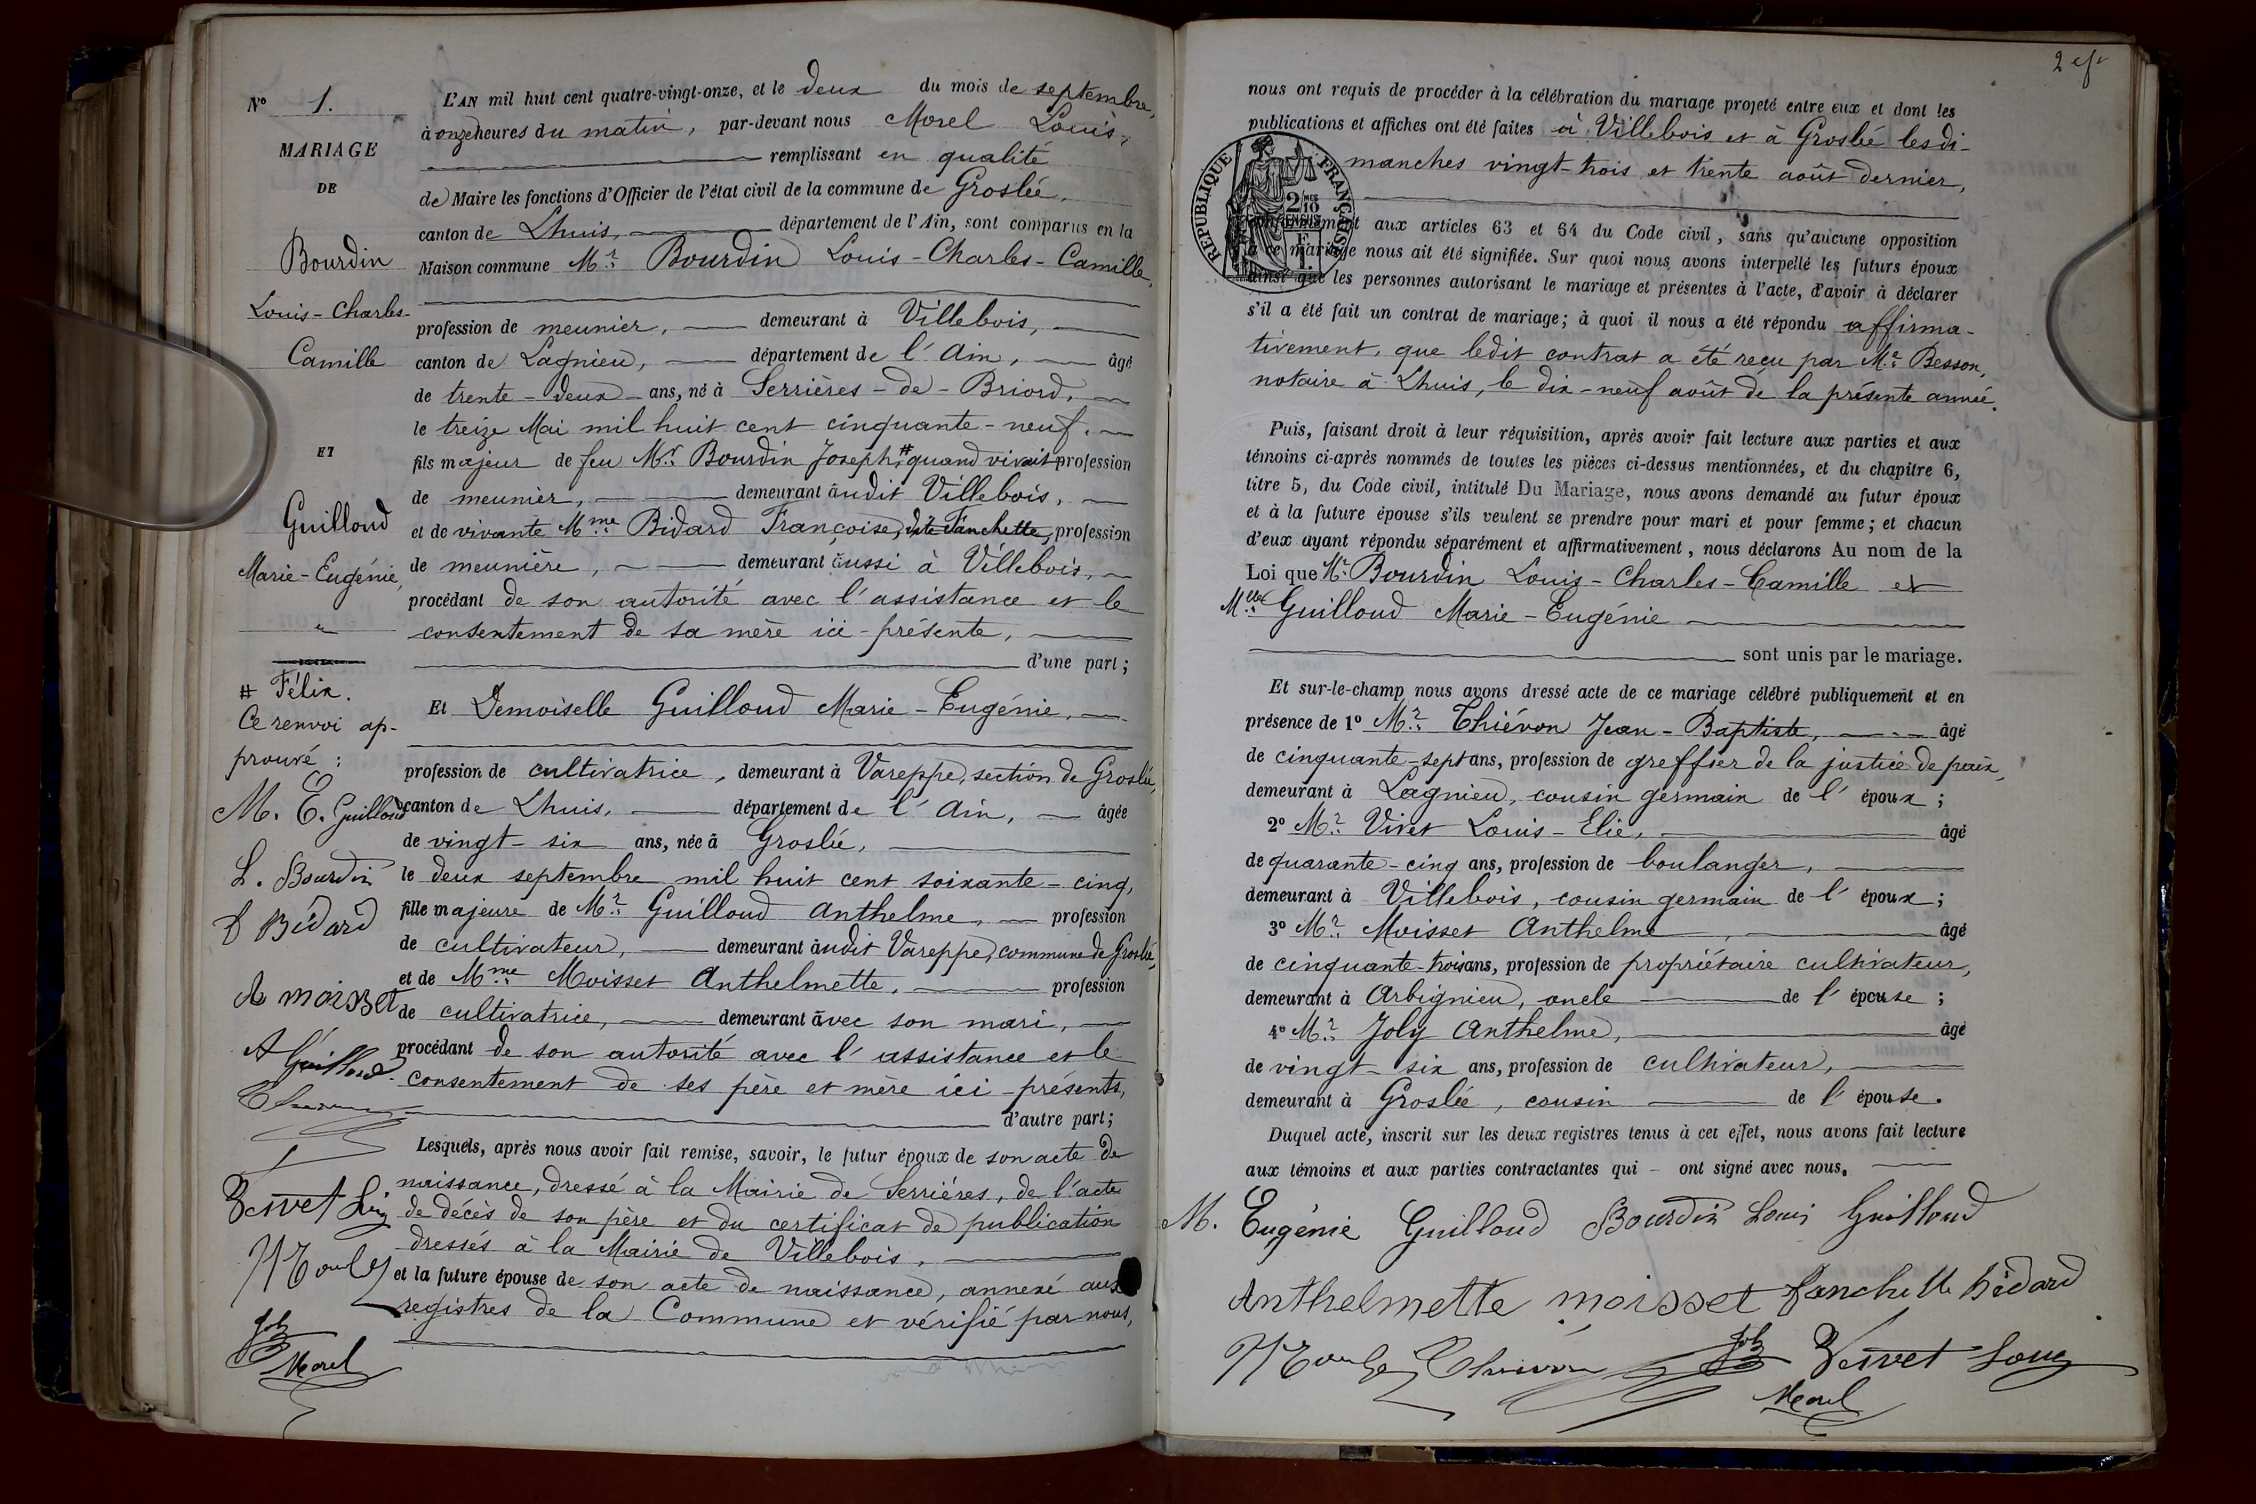 N° 1.
MARIAGE
DE
Bourdin
Louis-Charles-
Camille
ET
Guilloud
Marie-Eugénie,
# Félix.
Ce renvoi ap-
prouvé :
M. E. Guilloud
L. Bourdin
f Bédard
A moisset
A Guilloud
Morel
L'AN mil huit cent quatre-vingt-onze, et le deux du mois de septembre,
à onze heures du matin, par-devant nous Morel Louis,
remplissant en qualité
de Maire les fonctions d'Officier de l'état civil de la commune de Groslée,
canton de Lhuis, département de l'Ain, sont comparus en la
Maison commune Mr. Bourdin Louis-Charles-Camille,
profession de meunier, demeurant à Villebois,
canton de Lagnieu, département de l'Ain, âgé
de trente-deux ans, né à Serrières-de-Briord,
le treize Mai mil huit cent cinquante-neuf.
fils majeur de feu Mr. Bourdin Joseph,# quand vivait profession
de meunier, demeurant audit Villebois,
et de vivante Mme. Bidard Françoise, dite Fanchette, profession
de meunière, demeurant aussi à Villebois,
procédant de son autorité avec l'assistance et le
consentement de sa mère ici-présente,
d'une part ;
Et Demoiselle Guilloud Marie-Eugénie,
profession de cultivatrice, demeurant à Vareppe, section de Groslée,
canton de Lhuis, département de l'Ain, âgée
de vingt-six ans, née à Groslée,
le deux septembre mil huit cent soixante-cinq,
fille majeure de Mr. Guilloud Anthelme, profession
de cultivateur, demeurant audit Vareppe, commune de Groslée,
et de Mme. Moisset Anthelmette, profession
de cultivatrice, demeurant avec son mari,
procédant de son autorité avec l'assistance et le
consentement de ses père et mère ici-présents,
d'autre part ;
Lesquels, après nous avoir fait remise, savoir, le futur époux de son acte de
naissance, dressé à la Mairie de Serrières, de l'acte
de décès de son père et du certificat de publication
dressés à la Mairie de Villebois,
et la future épouse de son acte de naissance, annexé aux
registres de la Commune et vérifié par nous,
nous ont requis de procéder à la célébration du mariage projeté entre eux et dont les
publications et affiches ont été faites à Villebois et à Groslée les di-
manches vingt-trois et trente août dernier,
RÉPUBLIQUE FRANÇAISE
conformément aux articles 63 et 64 du Code civil, sans qu'aucune opposition
à ce mariage nous ait été signifiée. Sur quoi nous avons interpellé les futurs époux
ainsi que les personnes autorisant le mariage et présentes à l'acte, d'avoir à déclarer
s'il a été fait un contrat de mariage ; à quoi il nous a été répondu affirma-
tivement, que ledit contrat a été reçu par Me. Besson,
notaire à Lhuis, le dix-neuf août de la présente année.
Puis, faisant droit à leur réquisition, après avoir fait lecture aux parties et aux
témoins ci-après nommés de toutes les pièces ci-dessus mentionnées, et du chapitre 6,
titre 5, du Code civil, intitulé Du Mariage, nous avons demandé au futur époux
et à la future épouse s'ils veulent se prendre pour mari et pour femme ; et chacun
d'eux ayant répondu séparément et affirmativement, nous déclarons Au nom de la
Loi que Mr. Bourdin Louis-Charles-Camille et
Melle. Guilloud Marie-Eugénie
sont unis par le mariage.
Et sur-le-champ nous avons dressé acte de ce mariage célébré publiquement et en
présence de 1° Mr. Thiévon Jean-Baptiste, âgé
de cinquante-sept ans, profession de greffier de la justice de paix,
demeurant à Lagnieu, cousin germain de l'époux ;
2° Mr. Vivet Louis-Elie, âgé
de quarante-cinq ans, profession de boulanger,
demeurant à Villebois, cousin germain de l'époux ;
3° Mr. Moisset Anthelme, âgé
de cinquante-trois ans, profession de propriétaire cultivateur,
demeurant à Arbignieu, oncle de l'épouse ;
4° Mr. Joly Anthelme, âgé
de vingt-six ans, profession de cultivateur,
demeurant à Groslée, cousin de l'épouse.
Duquel acte, inscrit sur les deux registres tenus à cet effet, nous avons fait lecture
aux témoins et aux parties contractantes qui ont signé avec nous.
M. Eugénie Guilloud Bourdin Louis Guilloud
Anthelmette moisset fanchette bédard
Morel